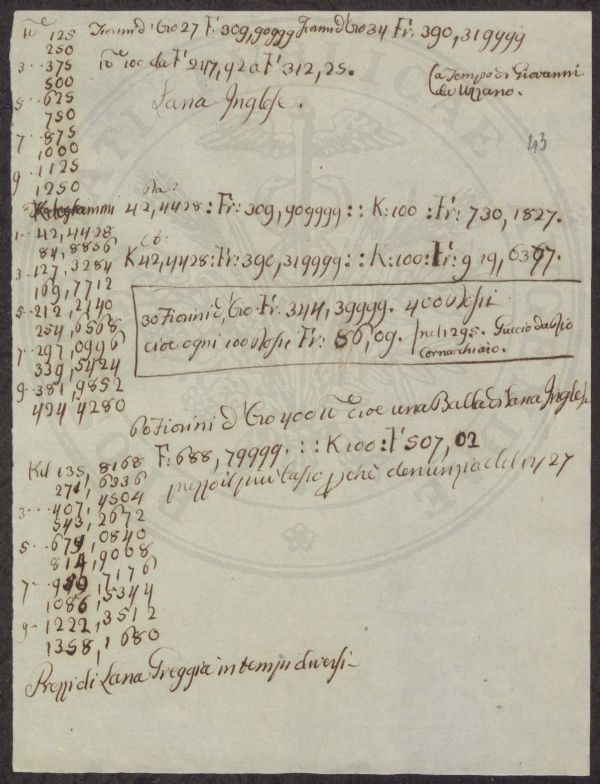 125 Fiorini d'Oro 27 Fr: 309,90999 Fiorini d'Oro 34 Fr: 390,319999
250
3..375 100 da Fr 247,92 a Fr 312,25. (a Tempo di Giovanni
500 da Uzzano.
5..625 Lana Inglese.
750
7..875 43
1000
9..1125
1250
Kilogrammi 42,4428:Fr:309,909999::K:100:Fr:730,1827.
1..42,4428
84,8856 K42,4428:Fr:390,319999::K:100:Fr:919,6367.
3..127,3284
169,7712
5..212,2140 30 Fiorini d'Oro Fr. 344,39999. 400 Vlosii
254,6568 cioe ogni 100 Vlosii Fr: 86,09. nel 1295. Guccio
7..297,0996 Cornacchiaio.
339,5424
9..381,9852
424,4280
60 Fiorini d'Oro 400 cioe una Balla di Lana Inglese
Kil 135,8168 F:688,79999.::K100:Fr507,02
271,6336 prezzo il piu basso pchè denunzia del 1427
3...407,4504
543,2672
5...679,0840
814,9008
7...950,7176
1086,5344
9..1222,3512
1358,1680
Prezzi di Lana Greggia in tempi diversi